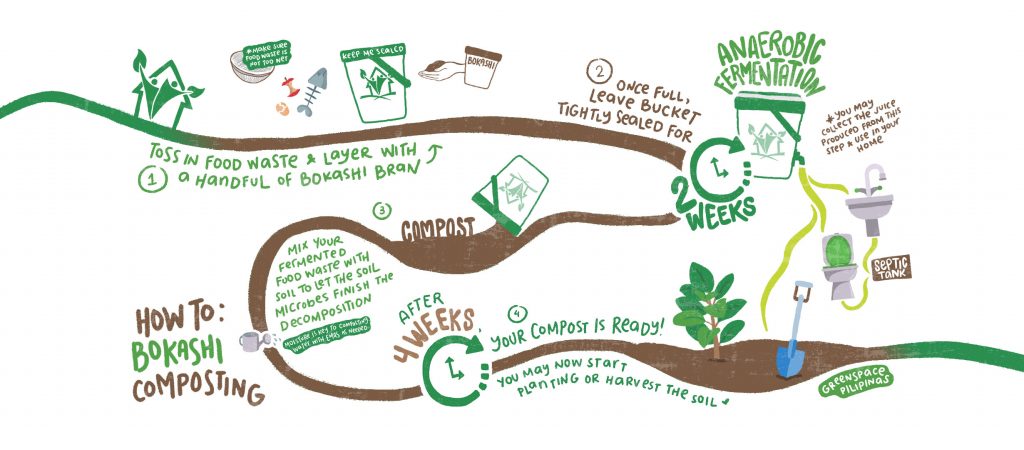 HOW TO:
BOKASHI
COMPOSTING
1
TOSS IN FOOD WASTE & LAYER WITH
A HANDFUL OF BOKASHI BRAN
*MAKE SURE
FOOD WASTE IS
NOT TOO WET
KEEP ME SEALED
BOKASHI
2
ONCE FULL,
LEAVE BUCKET
TIGHTLY SEALED FOR
2
WEEKS
ANAEROBIC
FERMENTATION
*YOU MAY
COLLECT THE JUICE
PRODUCED FROM THIS
STEP & USE IN YOUR
HOME
SEPTIC
TANK
3
COMPOST
MIX YOUR
FERMENTED
FOOD WASTE WITH
SOIL TO LET THE SOIL
MICROBES FINISH THE
DECOMPOSITION
MOISTURE IS KEY TO COMPOSTING
WATER WITH EMAS AS NEEDED
AFTER
4 WEEKS,
4
YOUR COMPOST IS READY!
YOU MAY NOW START
PLANTING OR HARVEST THE SOIL
GREENSPACE
PILIPINAS